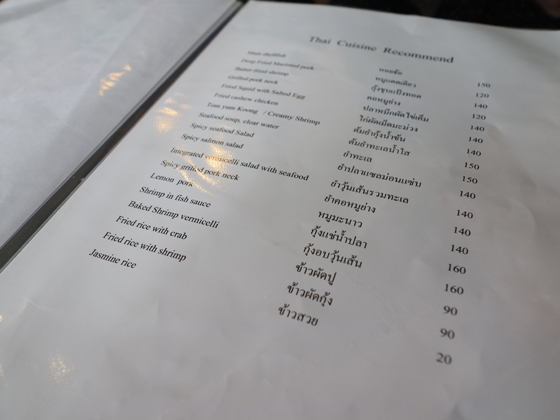 Thai Cuisine Recommend
Deep Fried Marinted pork
Butter-fried shrimp
Grilled pork neck
Fried Squid with Salted Egg
Fried cashew chicken
Tom yum Koong / Creamy Shrimp
Seafood soup, clear water
Spicy seafood Salad
Spicy salmon salad
Integrated vermicelli salad with seafood
Spicy grilled pork neck
Lemon pork
Shrimp in fish sauce
Baked Shrimp vermicelli
Fried rice with crab
Fried rice with shrimp
Jasmine rice
หมูแดดเดียว
กุ้งชุบแป้งทอด
คอหมูย่าง
ปลาหมึกผัดไข่เค็ม
ไก่ผัดเม็ดมะม่วง
ต้มยำกุ้งน้ำข้น
ต้มทะเลน้ำใส
ยำทะเล
ยำปลาแซลม่อนแซ่บ
ยำวุ้นเส้นรวมทะเล
ยำคอหมูย่าง
หมูมะนาว
กุ้งแช่น้ำปลา
กุ้งอบวุ้นเส้น
ข้าวผัดปู
ข้าวผัดกุ้ง
ข้าวสวย
150
120
140
120
140
140
150
150
140
140
140
160
160
90
90
20